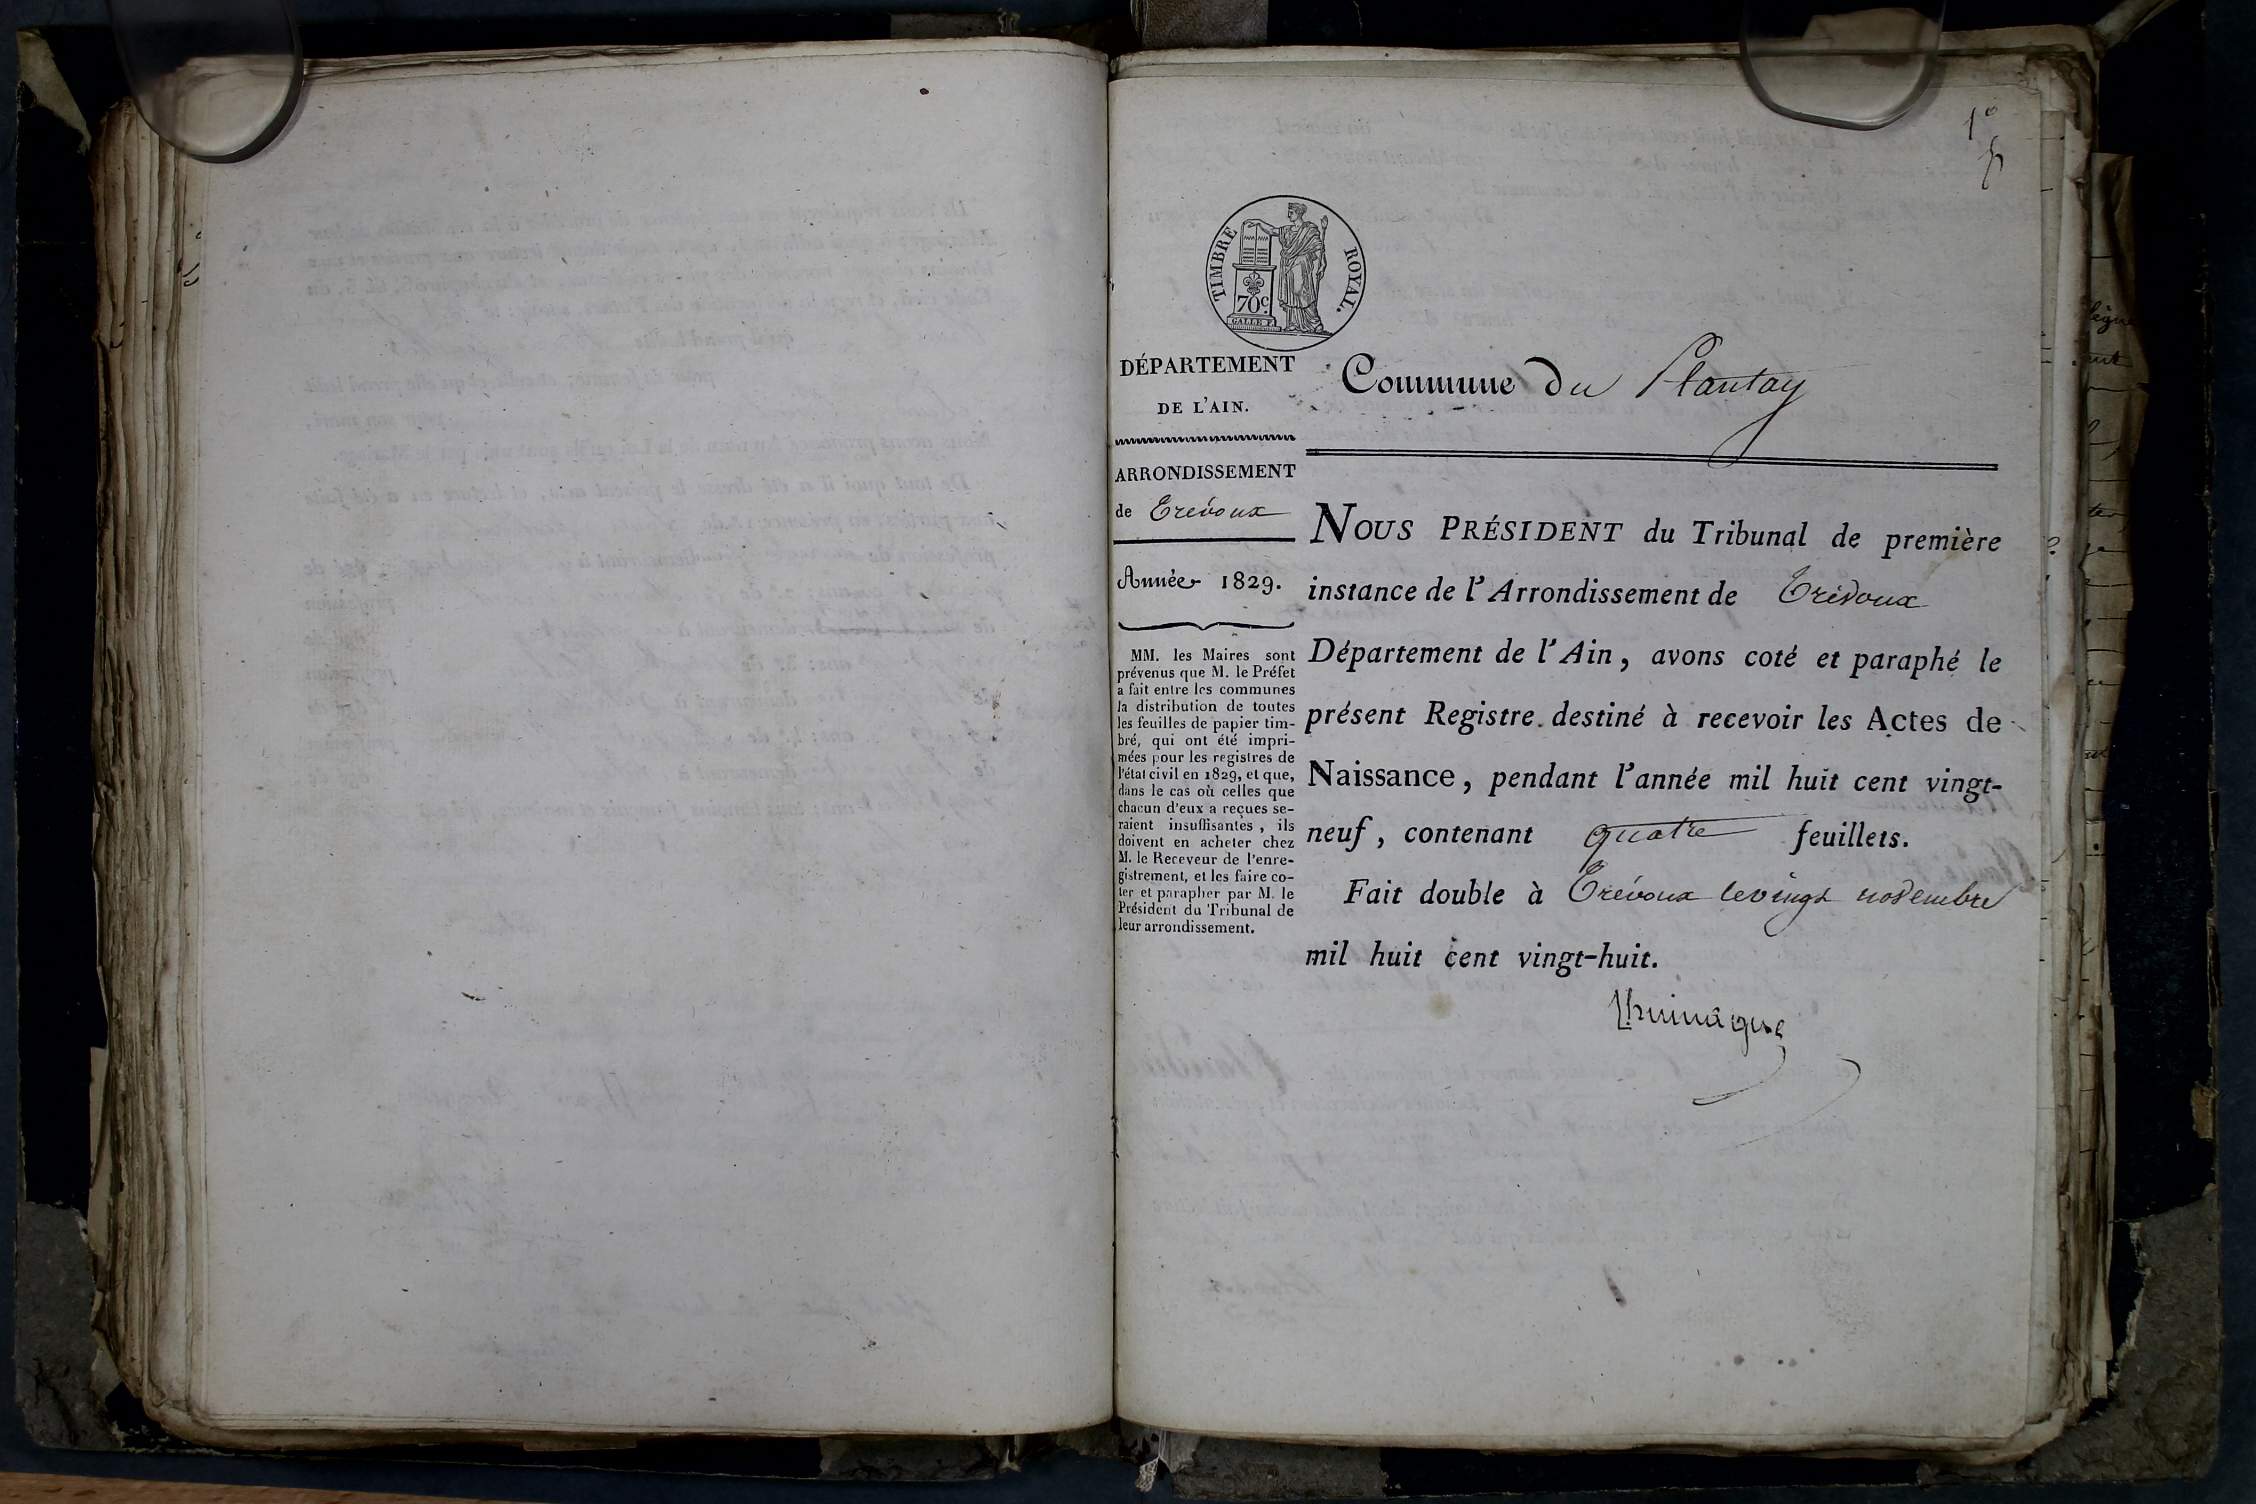 1°
TIMBRE ROYAL.
70c
GALLE F.
DÉPARTEMENT
DE L'AIN.
ARRONDISSEMENT
de Trévoux
Année 1829.
MM. les Maires sont
prévenus que M. le Préfet
a fait entre les communes
la distribution de toutes
les feuilles de papier tim-
bré, qui ont été impri-
mées pour les registres de
l'état civil en 1829, et que,
dans le cas où celles que
chacun d'eux a reçues se-
raient insuffisantes, ils
doivent en acheter chez
M. le Receveur de l'enre-
gistrement, et les faire co-
ter et parapher par M. le
Président du Tribunal de
leur arrondissement.
Commune du Plantay
NOUS PRÉSIDENT du Tribunal de première
instance de l'Arrondissement de Trévoux
Département de l'Ain, avons coté et paraphé le
présent Registre destiné à recevoir les Actes de
Naissance, pendant l'année mil huit cent vingt-
neuf, contenant quatre feuillets.
Fait double à Trévoux le vingt novembre
mil huit cent vingt-huit.